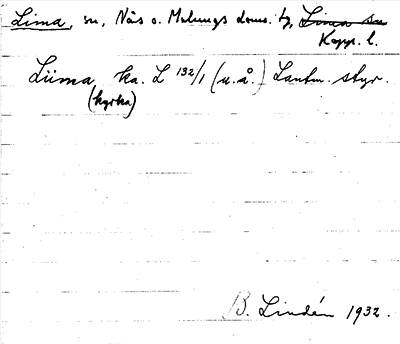 Lima, sn, Nås o. Malungs doms. tg, Lima sn
Kopp. l.
Liima, ka. L 132/1 (u.å.) Lantm. styr.
(kyrka)
B. Lindén 1932.